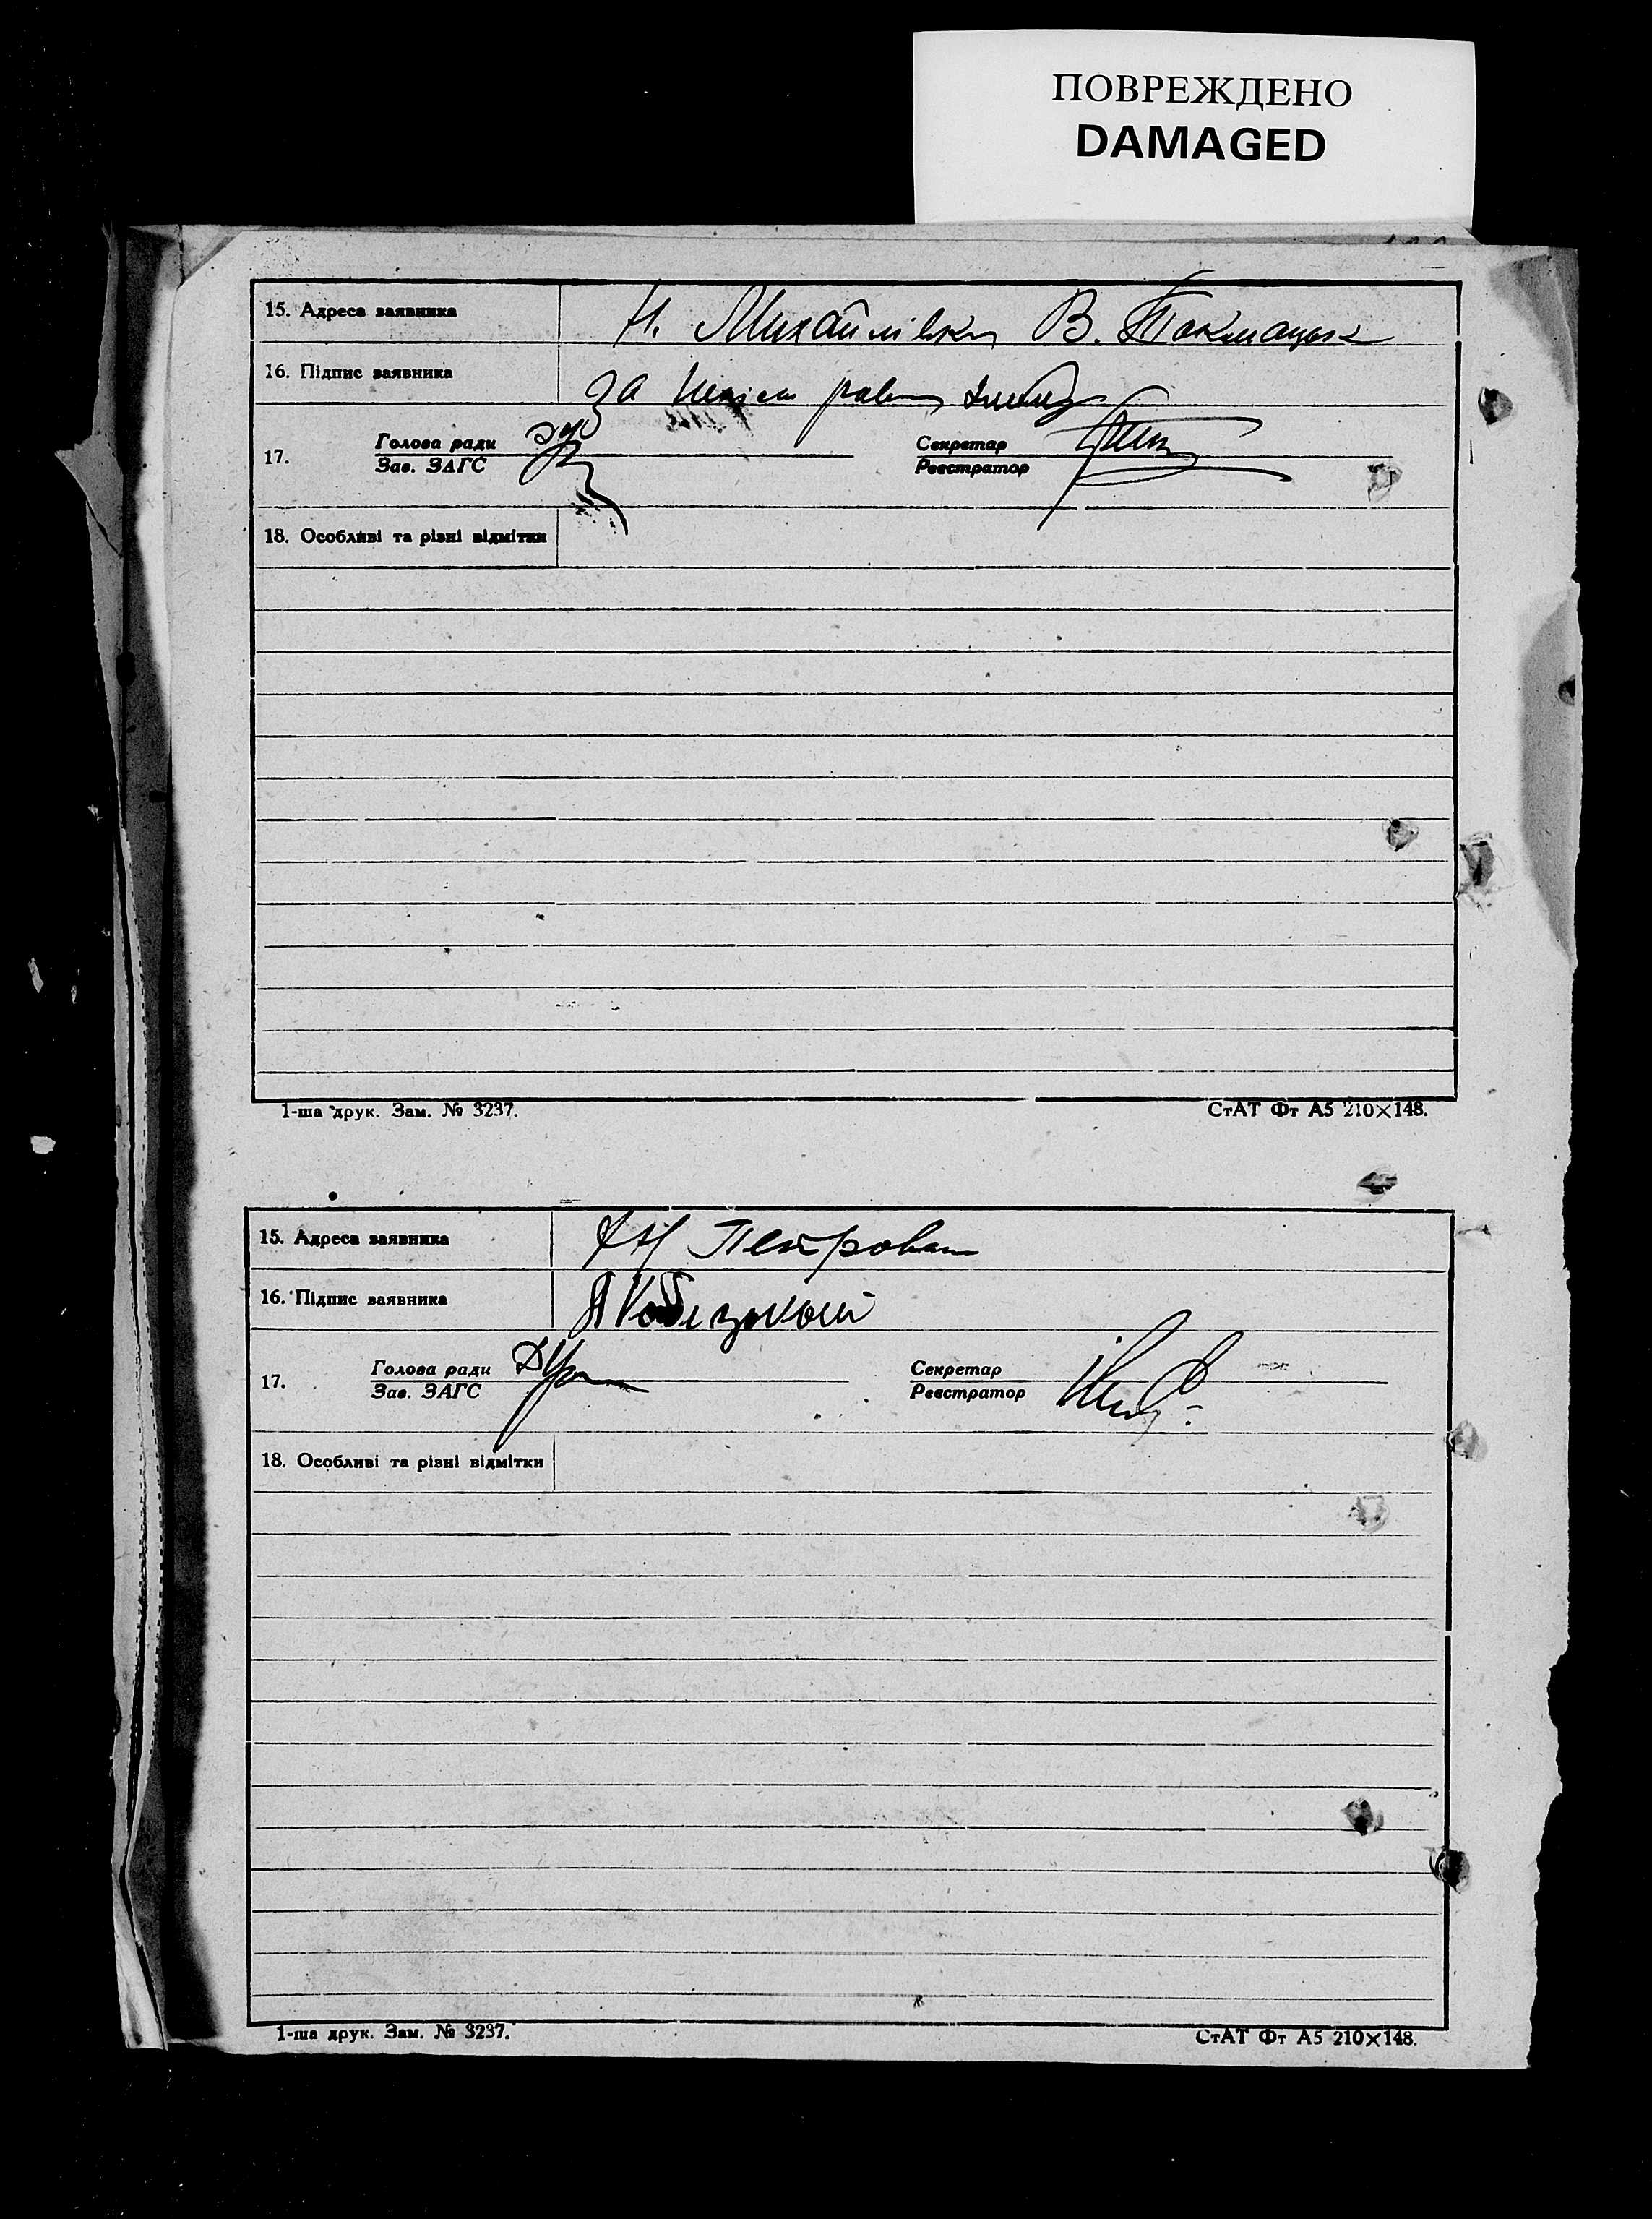 ПОВРЕЖДЕНО
DAMAGED
15. Адреса заявника Н. Михайлівка В. Токмацьк
16. Підпис заявника За
17. Голова ради Секретар
Зав. ЗАГС Реєстратор
18. Особливі та різні відмітки
1-ша друк. Зам. № 3237. СтАТ Фт А5 210×148.
15. Адреса заявника Петрован
16. Підпис заявника
17. Голова ради Секретар
Зав. ЗАГС Реєстратор
18. Особливі та різні відмітки
1-ша друк. Зам. № 3237. СтАТ Фт А5 210×148.